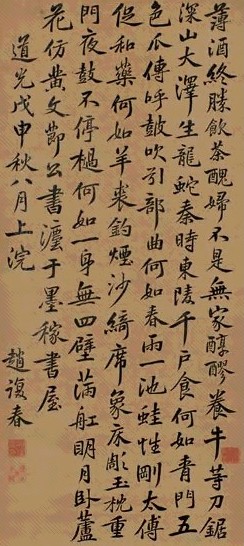 薄酒終勝飲茶醜婦不是無家醇醪養牛等刀鋸
深山大澤生龍蛇秦時東陵千戶食何如青門五
色瓜傳呼皷吹引部曲何如春雨一池蛙性剛太傅
促和藥何如羊裘釣煙沙綺席象床彫玉枕重
門夜鼓不停撾何如一身無四壁滿舡明月臥蘆
花仿黃文節公書于墨稼書屋
道光戊申秋八月上浣
趙復春